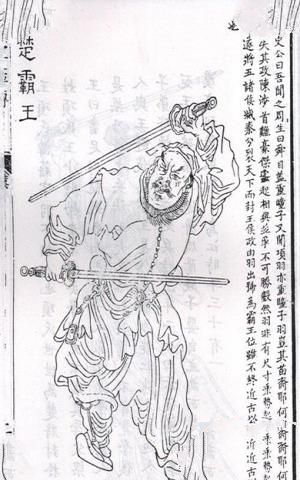 史公曰吾聞之周生曰舜目蓋重瞳子又聞項羽亦重瞳子羽豈其苗裔耶何
失其政陳涉首難豪傑蠭起相與並爭不可勝數然羽非有尺寸乘勢起
遂將五諸侯滅秦分裂天下而封王侯政由羽出號為霸王位雖不終近古以
楚霸王